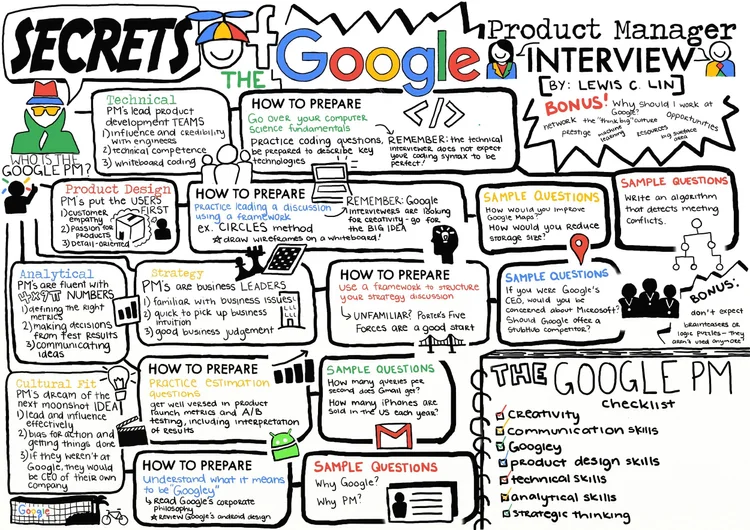 SECRETS
of
THE
Google
Product Manager
INTERVIEW
[BY: LEWIS C. LIN]
WHO IS THE
GOOGLE PM?
Technical
PM's lead product
development TEAMS
1) influence and credibility
with engineers
2) technical competence
3) whiteboard coding
HOW TO PREPARE
Go over your computer
science fundamentals
practice coding questions,
be prepared to describe key
technologies
</>
REMEMBER: the technical
interviewer does not expect
your coding syntax to be
perfect!
BONUS!
Why should I work at
Google?
network
the "think big" culture
opportunities
prestige
machine
learning
resources
big surface
area
Product Design
PM's put the USERS
FIRST
1) customer
empathy
2) Passion for
products
3) detail-oriented
HOW TO PREPARE
practice leading a discussion
using a framework
ex. CIRCLES method
★ draw wireframes on a whiteboard!
REMEMBER: Google
interviewers are looking
for creativity - go for
the BIG IDEA
SAMPLE QUESTIONS
How would you improve
Google Maps?
How would you reduce
storage size?
SAMPLE QUESTIONS
Write an algorithm
that detects meeting
conflicts.
Analytical
PM's are fluent with
NUMBERS
1) defining the right
metrics
2) making decisions
from test results
3) communicating
ideas
Strategy
PM's are business LEADERS
1) familiar with business issues
2) quick to pick up business
intuition
3) good business judgement
HOW TO PREPARE
Use a framework to structure
your strategy discussion
UNFAMILIAR? Porter's Five
Forces are a good start
SAMPLE QUESTIONS
If you were Google's
CEO, would you be
concerned about Microsoft?
Should Google offer a
StubHub competitor?
BONUS!
don't expect
brainteasers or
logic puzzles - they
aren't used anymore!
Cultural Fit
PM's dream of the
next moonshot IDEA
1) lead and influence
effectively
2) bias for action and
getting things done
3) if they weren't at
Google, they would
be CEO of their own
company
Google
HOW TO PREPARE
Practice estimation
questions
get well versed in product
launch metrics and A/B
testing, including interpretation
of results
SAMPLE QUESTIONS
How many queries per
second does Gmail get?
How many iPhones are
sold in the US each year?
HOW TO PREPARE
Understand what it means
to be "Googley"
Read Google's corporate
philosophy
★ Review Google's android design
SAMPLE QUESTIONS
Why Google?
Why PM?
THE GOOGLE PM
checklist
creativity
communication skills
Googley
product design skills
technical skills
analytical skills
strategic thinking